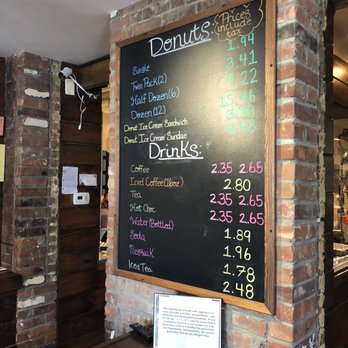 Donuts:
Prices
include
tax
Single 1.94
Twin Pack(2) 3.41
Half Dozen(6) 9.22
Dozen(12)
Donut Ice Cream Sandwich
Donut Ice Cream Sundae
Drinks:
Coffee 2.35 2.65
Iced Coffee(16oz) 2.80
Tea 2.35 2.65
Hot Choc 2.35 2.65
Water(Bottled) 1.89
Soda 1.96
Nesquik 1.78
Iced Tea 2.48